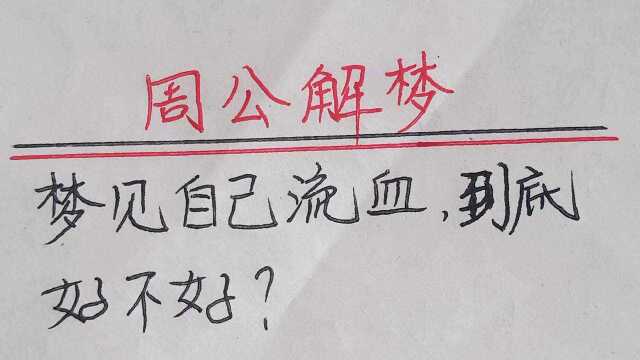 周公解梦
梦见自己流血,到底
好不好?